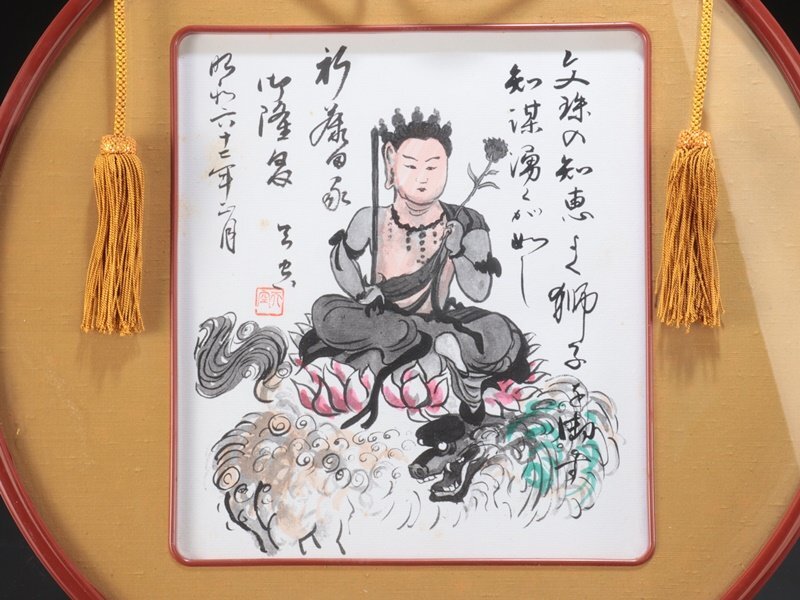 文珠の知恵よく獅子を御す
知謀湧くが如し
祈藤田家
御隆昌
昭和六十二年二月